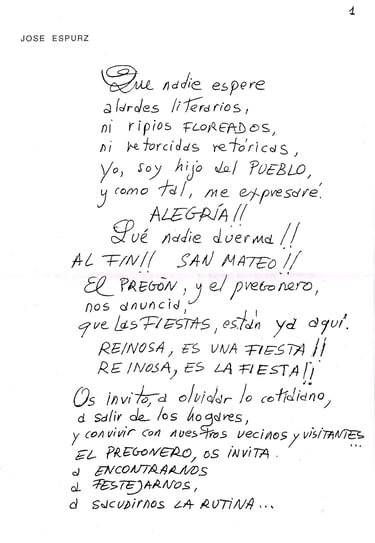 1
JOSE ESPURZ
Que nadie espere
alardes literarios,
ni ripios FLOREADOS,
ni retorcidas retóricas,
Yo, soy hijo del PUEBLO,
y como tal, me expresaré.
ALEGRÍA!!
Qué nadie duerma!!
AL FIN!! SAN MATEO!!
El PREGÓN, y el pregonero,
nos anuncia,
que las FIESTAS, están ya aquí.
REINOSA, ES UNA FIESTA!!
REINOSA, ES LA FIESTA!!
Os invito, a olvidar lo cotidiano,
a salir de los hogares,
y convivir con nuestros vecinos y VISITANTES...
EL PREGONERO, OS INVITA.
a ENCONTRARNOS
a FESTEJARNOS,
a SUCUDIRNOS LA RUTINA...